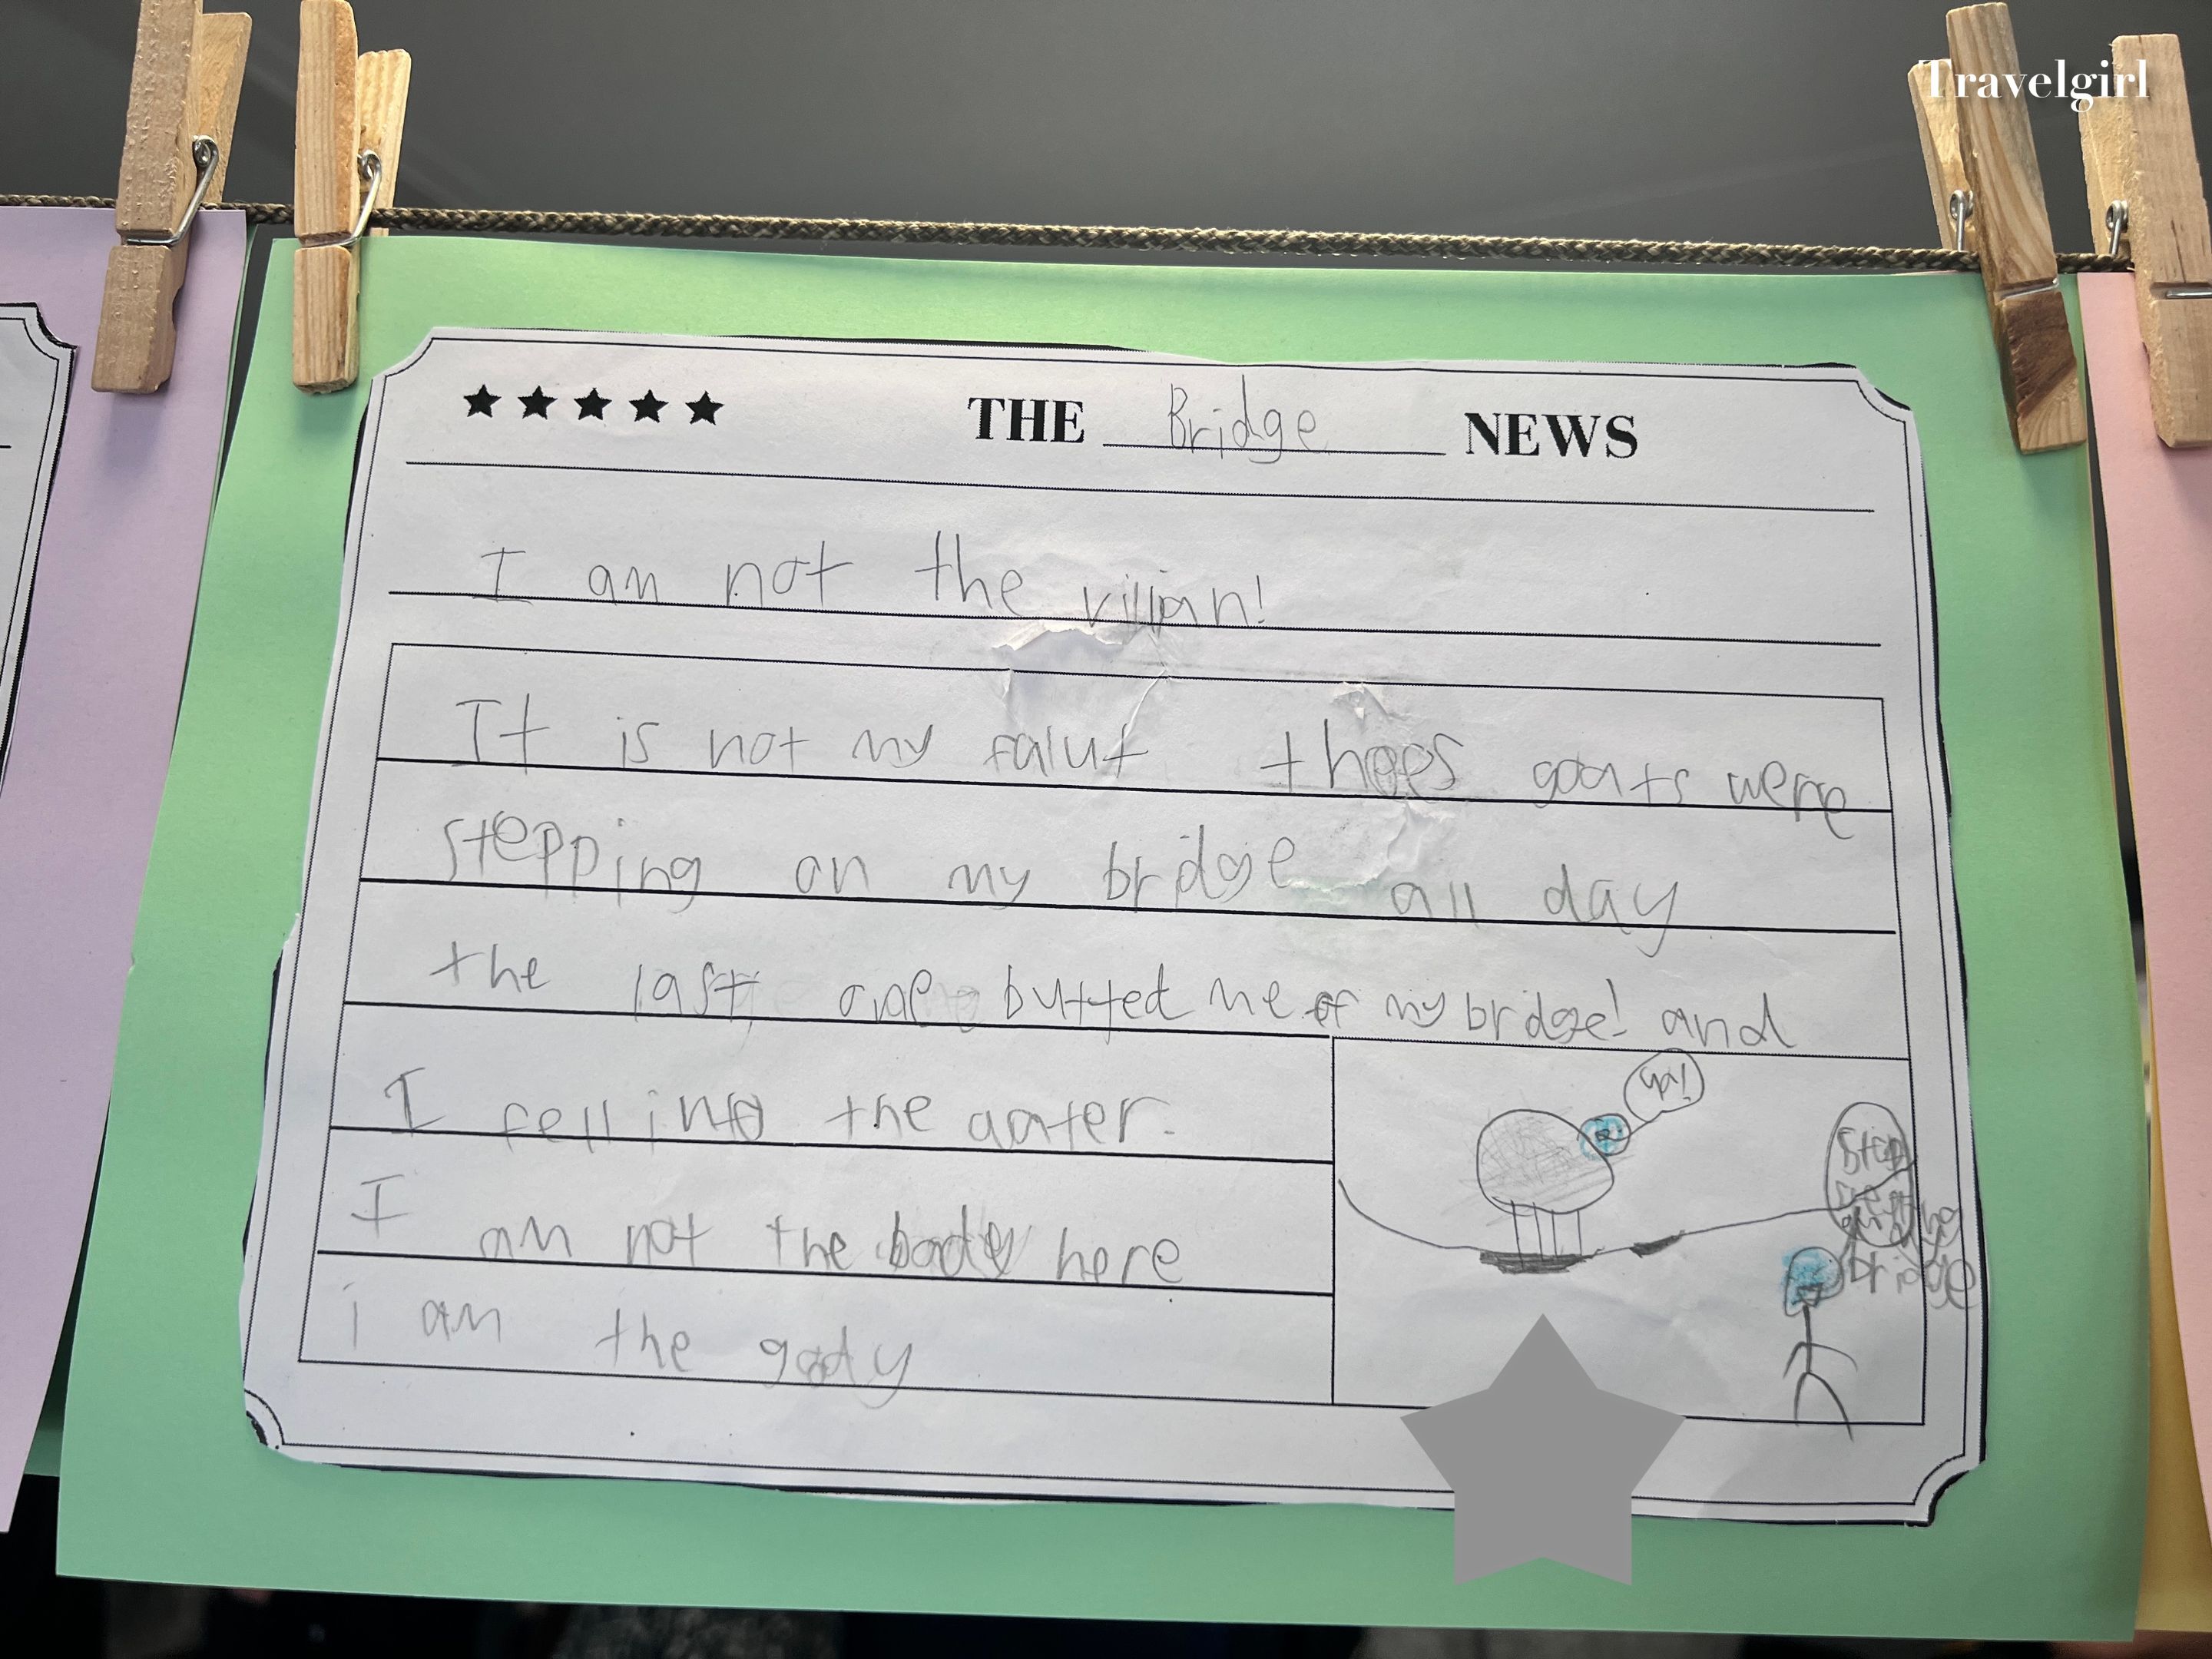 Travelgirl
THE Bridge NEWS
I am not the vilian!
It is not my falut thees goats werre
stepping on my bridge all day
the last one butted me of my bridge! and
I fell into the aater.
I am not the bady here
i am the gody
ya!
Stop
bridge